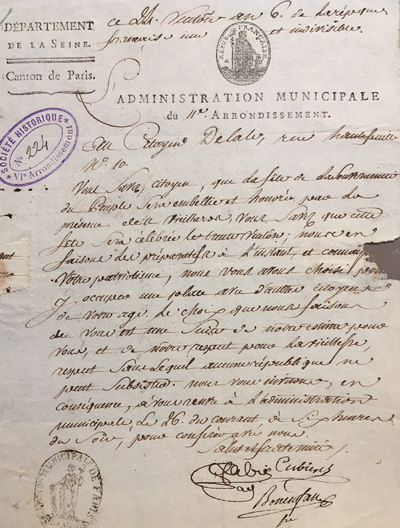 DÉPARTEMENT
DE LA SEINE.
Canton de Paris.
ce 24 Ventôse an 6. de la république
française une et indivisible
RÉPUBLIQUE FRANÇAISE
L'ADMINISTRATION MUNICIPALE
du 11e. ARRONDISSEMENT.
SOCIÉTÉ HISTORIQUE
No 224
VIe Arrondissement
Au Citoyen Delalu, rue hautefeuille
No. 10.
Vous savez, citoyen, que la fête de la Souveraineté
du Peuple sera embellie et honorée par la
présence des vieillards. Vous savez que cette
fête sera célébrée le trente Ventôse; nous en
faisons les préparatifs à l'instant, et
votre patriotisme, nous vous avons choisi pour
y occuper une place avec d'autres citoyens
de votre âge. le choix que nous faisons
de vous est une suite de notre estime pour
vous, et de notre respect pour la vieillesse,
respect sans lequel aucune république ne
peut subsister. nous vous invitons, en
conséquence, à vous rendre à l'administration
municipale, le 26 du courant, de heures
du soir, pour conférer avec nous.
Salut et fraternité